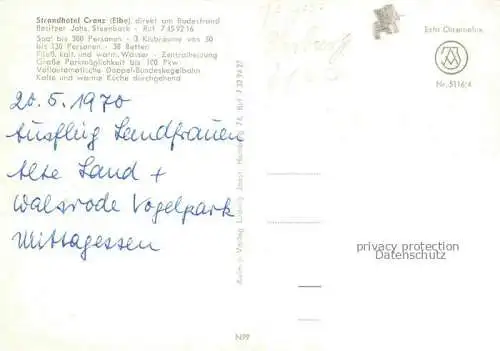 Strandhotel Cranz (Elbe) direkt am Badestrand
Besitzer Johs. Steenbock - Ruf 7 45 92 16
Saal bis 500 Personen - 3 Klubräume von 50
bis 130 Personen - 38 Betten
Fließ. kalt. und warm. Wasser - Zentralheizung
Große Parkmöglichkeit bis 100 Pkw
Vollautomatische Doppel-Bundeskegelbahn
Kalte und warme Küche durchgehend
20.5.1970
Ausflug Landfrauen
Alte Land +
Walsrode Vogelpark
Mittagessen
Ludwig Hamburg
Echt Chromofoto
Nr. 5116/4
privacy protection
Datenschutz
N99